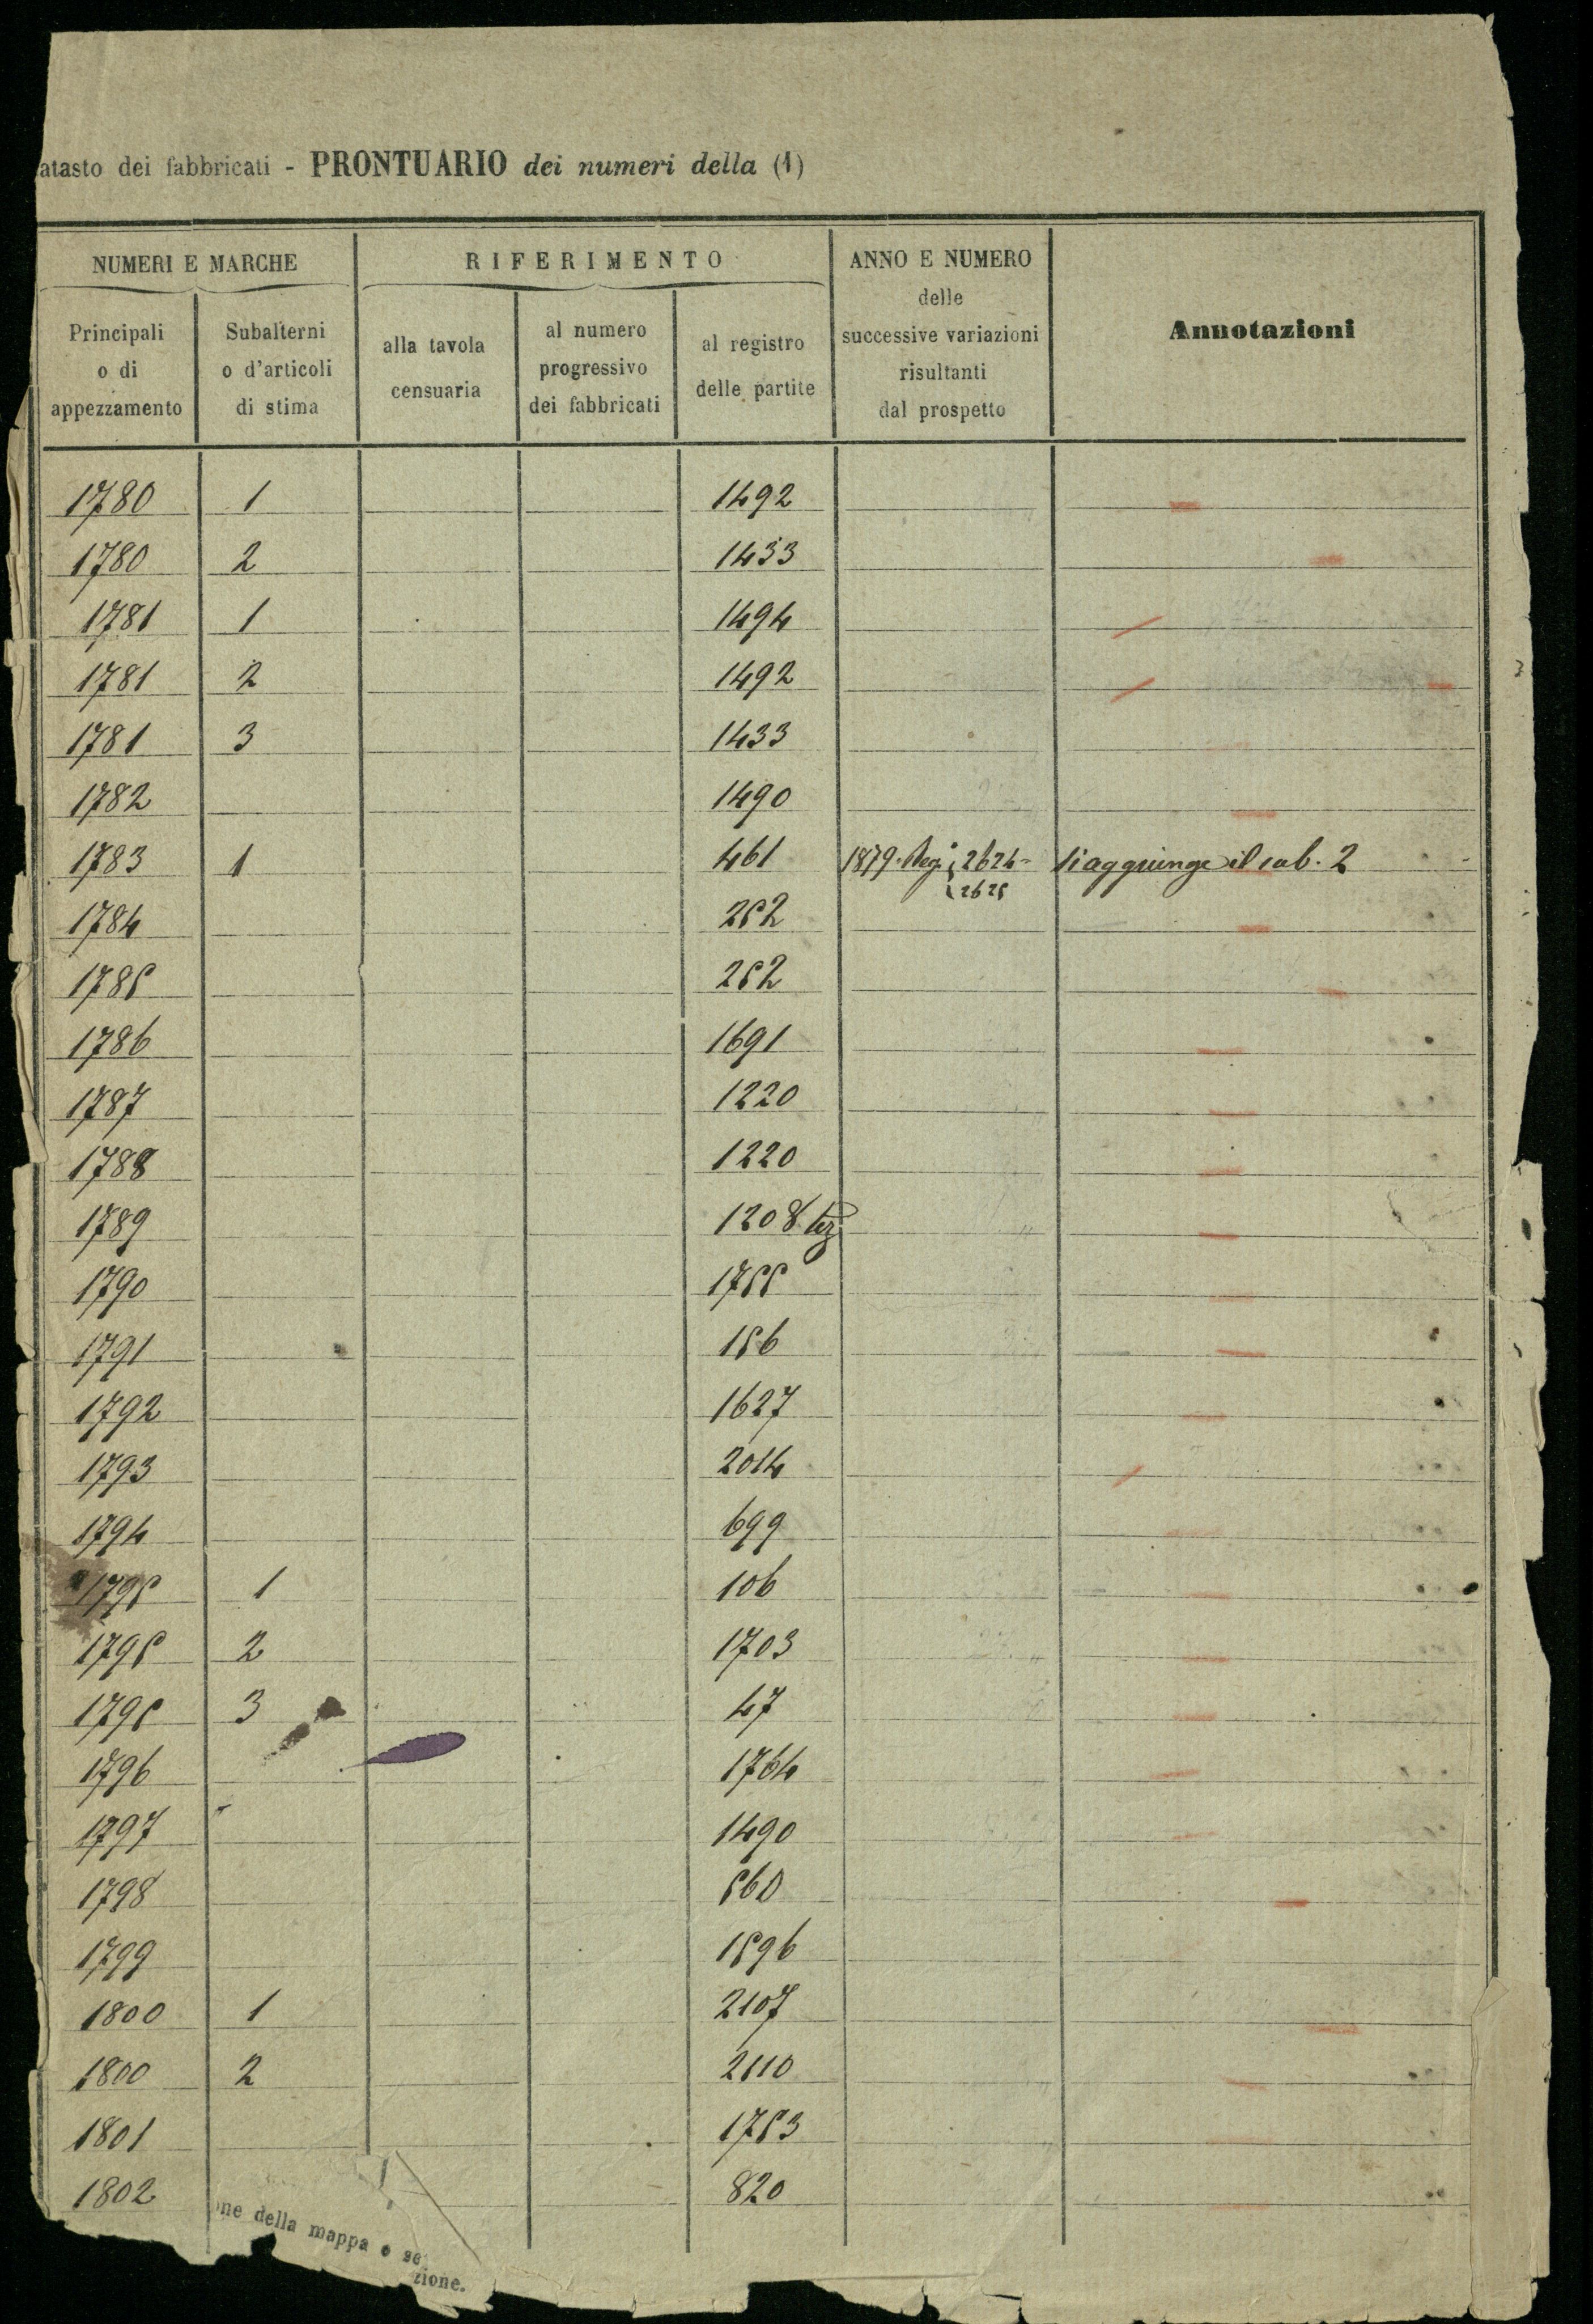 atasto dei fabbricati - PRONTUARIO dei numeri della (1)
NUMERI E MARCHE RIFERIMENTO ANNO E NUMERO delle successive variazioni risultanti dal prospetto Annotazioni
Principali o di appezzamento Subalterni o d'articoli di stima alla tavola censuaria al numero progressivo dei fabbricati al registro delle partite
1780 1 1492
1780 2 1433
1781 1 1494
1781 2 1492
1781 3 1433
1782 1490
1783 1 461 1879. 2624 - si aggiunge il sub. 2
2625
1784 252
1785 252
1786 1691
1787 1220
1788 1220
1789 1208 ter
1790 1755
1791 156
1792 1627
1793 2014
1794 699
1795 1 106
1795 2 1703
1795 3 47
1796 1764
1797 1490
1798 560
1799 1596
1800 1 2107
1800 2 2110
1801 1753
1802 820
ne della mappa o se
zione.